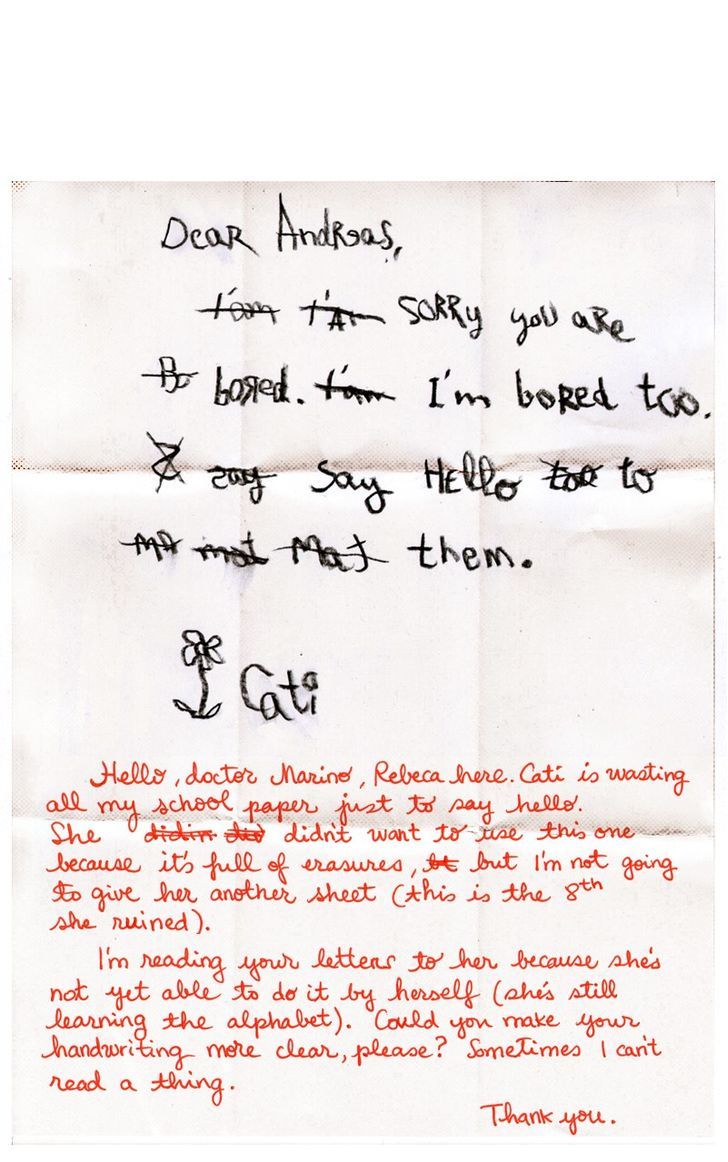 Dear Andreas,
I'am I'Am SORRy you aRe
Bo boRed. I'am I'm boRed too.
Z zay Say HEllo too to
MA mat Mat them.
Cati
Hello, doctor Marino, Rebeca here. Cati is wasting
all my school paper just to say hello.
She didin did didn't want to use this one
because it's full of erasures, bt but I'm not going
to give her another sheet (this is the 8th
she ruined).
I'm reading your letters to her because she's
not yet able to do it by herself (she's still
learning the alphabet). Could you make your
handwriting more clear, please? Sometimes I can't
read a thing.
Thank you.